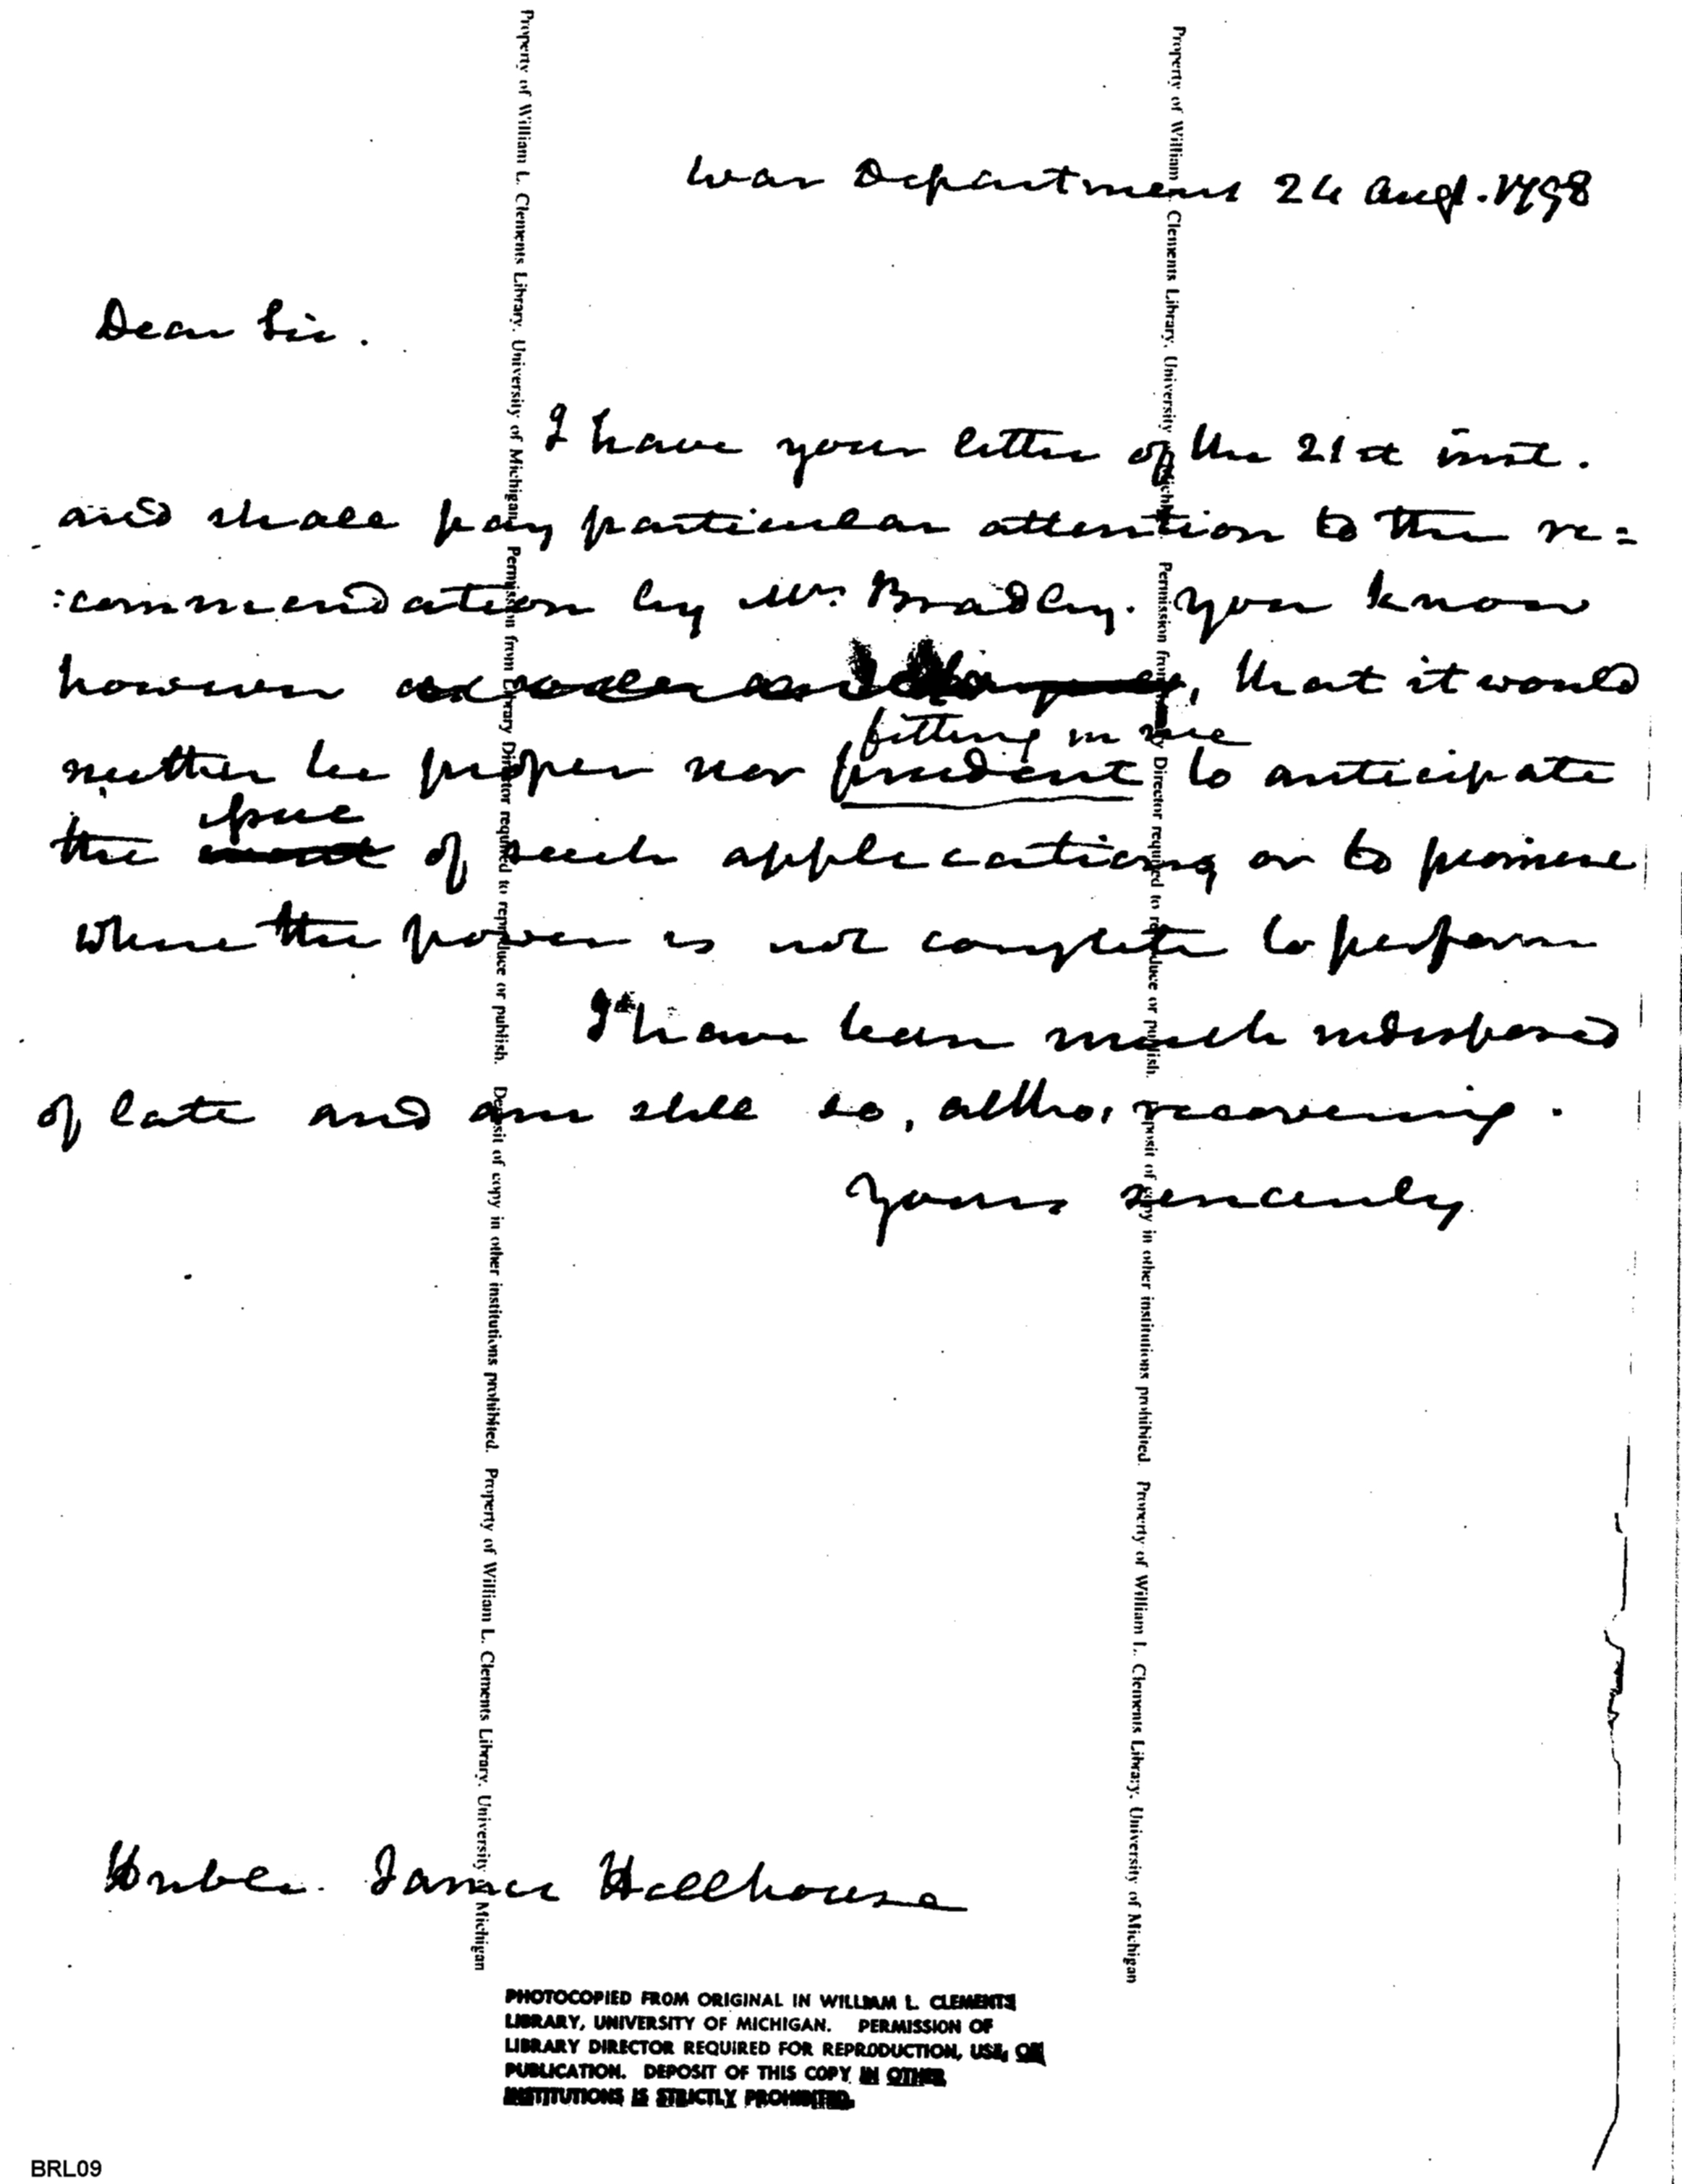 War Department 24 Augt. 1798
Dear Sir.
I have your letter of the 21st inst.
and shall pay particular attention to the re=
:commendation by Mr. Bradley. You know
however, that it would
fitting in me
neither be proper nor prudent to anticipate
issue
the event of such applications or to promise
where the power is not complete to perform
I have been much indisposed
of late and am still so, altho' recovering.
Yours sincerely
Honble. James Hillhouse
PHOTOCOPIED FROM ORIGINAL IN WILLIAM L. CLEMENTS
LIBRARY, UNIVERSITY OF MICHIGAN. PERMISSION OF
LIBRARY DIRECTOR REQUIRED FOR REPRODUCTION, USE, OR
PUBLICATION. DEPOSIT OF THIS COPY IN OTHER
INSTITUTIONS IS STRICTLY PROHIBITED.
BRL09
Property of William L. Clements Library, University of Michigan. Permission from Library Director required to reproduce or publish. Deposit of copy in other institutions prohibited. Property of William L. Clements Library, University of Michigan
Property of William L. Clements Library, University of Michigan. Permission from Library Director required to reproduce or publish. Deposit of copy in other institutions prohibited. Property of William L. Clements Library, University of Michigan